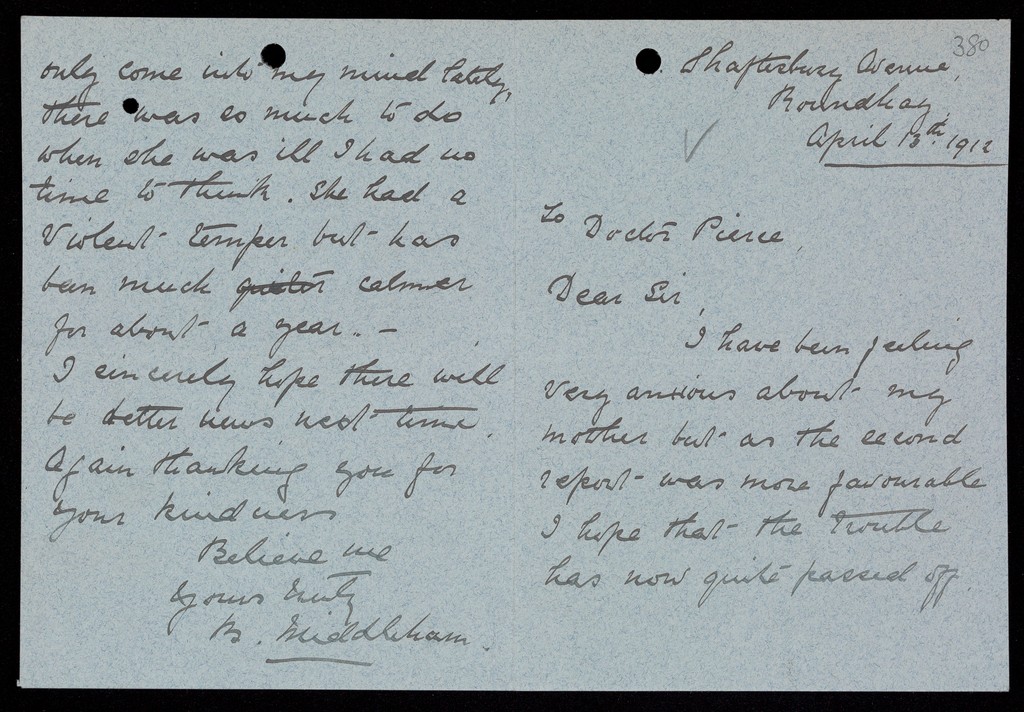 380
Shaftesbury Avenue,
Roundhay
April 13th 1912
To Doctor Pierce,
Dear Sir,
I have been feeling
very anxious about my
mother but as the second
report was more favourable
I hope that the trouble
has now quite passed off.
only come into my mind lately,
there was so much to do
when she was ill I had no
time to think. She had a
violent temper but has
been much quieter calmer
for about a year. –
I sincerely hope there will
be better news next time.
Again thanking you for
your kindness
Believe me
Yours truly
B. Middleham.